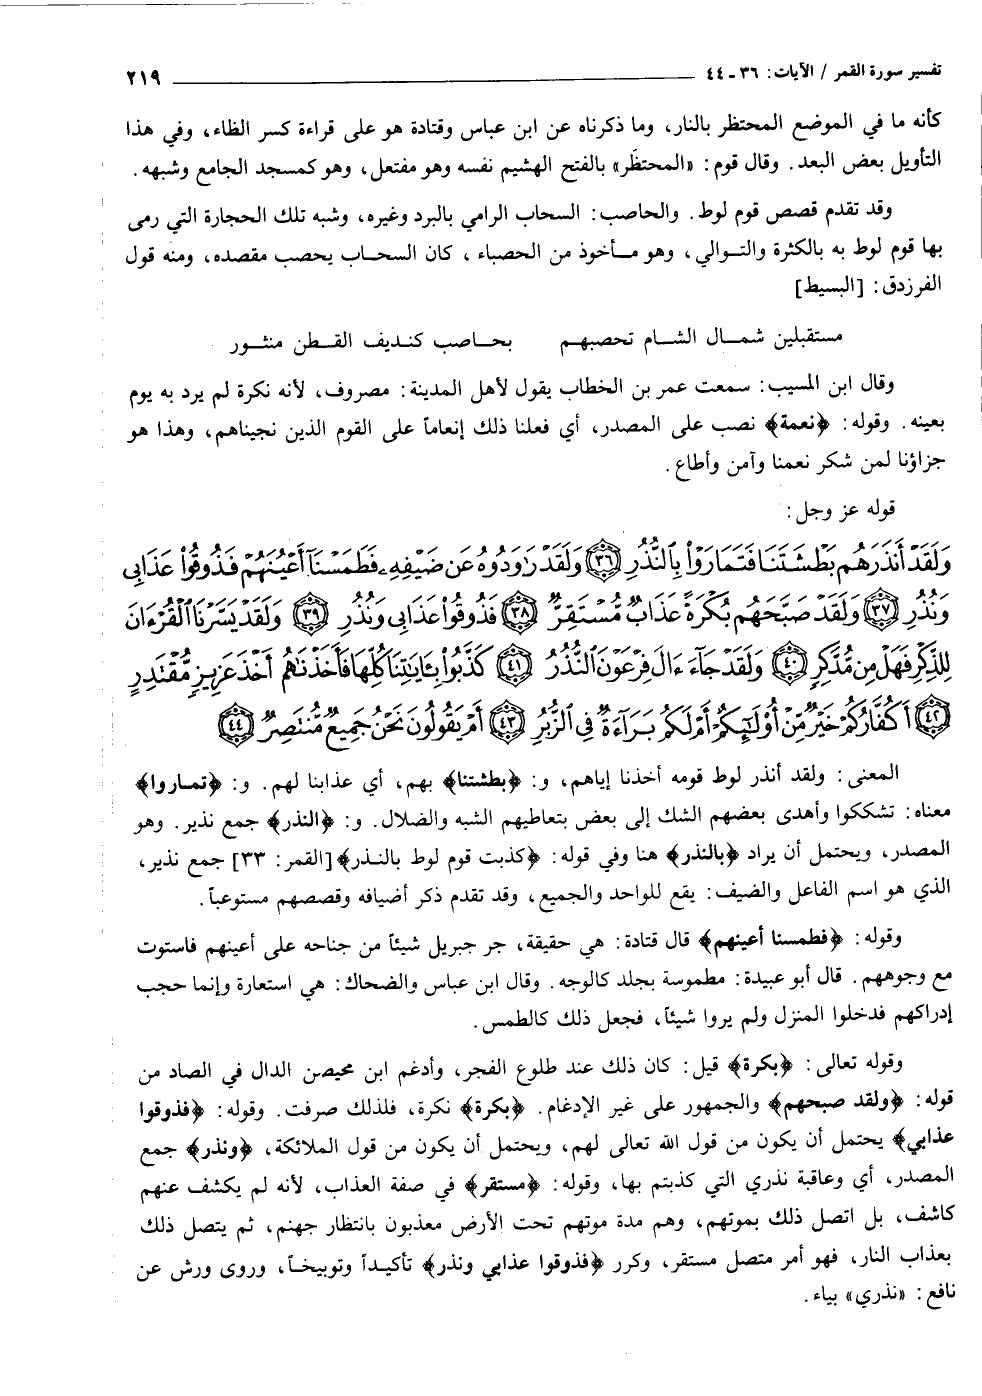 تفسير سورة القمر / الآيات: ٣٦ - ٤٤ ٢١٩
كأنه ما في الموضع المحتظر بالنار، وما ذكرناه عن ابن عباس وقتادة هو على قراءة كسر الظاء، وفي هذا
التأويل بعض البعد. وقال قوم: «المحتظَر» بالفتح الهشيم نفسه وهو مفتعل، وهو كمسجد الجامع وشبهه.
وقد تقدم قصص قوم لوط. والحاصب: السحاب الرامي بالبرد وغيره، وشبه تلك الحجارة التي رمى
بها قوم لوط به بالكثرة والتوالي، وهو مأخوذ من الحصباء، كان السحاب يحصب مقصده، ومنه قول
الفرزدق: [البسيط]
مستقبلين شمال الشام تحصبهم بحاصب كنديف القطن منثور
وقال ابن المسيب: سمعت عمر بن الخطاب يقول لأهل المدينة: مصروف، لأنه نكرة لم يرد به يوم
بعينه. وقوله: ﴿نعمة﴾ نصب على المصدر، أي فعلنا ذلك إنعاماً على القوم الذين نجيناهم، وهذا هو
جزاؤنا لمن شكر نعمنا وآمن وأطاع.
قوله عز وجل:
وَلَقَدْ أَنذَرَهُم بَطْشَتَنَا فَتَمَارَوْا۟ بِٱلنُّذُرِ ﴿٣٦﴾ وَلَقَدْ رَٰوَدُوهُ عَن ضَيْفِهِۦ فَطَمَسْنَآ أَعْيُنَهُمْ فَذُوقُوا۟ عَذَابِى
وَنُذُرِ ﴿٣٧﴾ وَلَقَدْ صَبَّحَهُم بُكْرَةً عَذَابٌ مُّسْتَقِرٌّ ﴿٣٨﴾ فَذُوقُوا۟ عَذَابِى وَنُذُرِ ﴿٣٩﴾ وَلَقَدْ يَسَّرْنَا ٱلْقُرْءَانَ
لِلذِّكْرِ فَهَلْ مِن مُّدَّكِرٍ ﴿٤٠﴾ وَلَقَدْ جَآءَ ءَالَ فِرْعَوْنَ ٱلنُّذُرُ ﴿٤١﴾ كَذَّبُوا۟ بِـَٔايَٰتِنَا كُلِّهَا فَأَخَذْنَٰهُمْ أَخْذَ عَزِيزٍ مُّقْتَدِرٍ
﴿٤٢﴾ أَكُفَّارُكُمْ خَيْرٌ مِّنْ أُو۟لَٰٓئِكُمْ أَمْ لَكُم بَرَآءَةٌ فِى ٱلزُّبُرِ ﴿٤٣﴾ أَمْ يَقُولُونَ نَحْنُ جَمِيعٌ مُّنتَصِرٌ ﴿٤٤﴾
المعنى: ولقد أنذر لوط قومه أخذنا إياهم، و: ﴿بطشتنا﴾ بهم، أي عذابنا لهم. و: ﴿تماروا﴾
معناه: تشككوا وأهدى بعضهم الشك إلى بعض بتعاطيهم الشبه والضلال. و: ﴿النذر﴾ جمع نذير. وهو
المصدر، ويحتمل أن يراد ﴿بالنذر﴾ هنا وفي قوله: ﴿كذبت قوم لوط بالنذر﴾ [القمر: ٣٣] جمع نذير،
الذي هو اسم الفاعل والضيف: يقع للواحد والجميع، وقد تقدم ذكر أضيافه وقصصهم مستوعباً.
وقوله: ﴿فطمسنا أعينهم﴾ قال قتادة: هي حقيقة، جر جبريل شيئاً من جناحه على أعينهم فاستوت
مع وجوههم. قال أبو عبيدة: مطموسة بجلد كالوجه. وقال ابن عباس والضحاك: هي استعارة وإنما حجب
إدراكهم فدخلوا المنزل ولم يروا شيئاً، فجعل ذلك كالطمس.
وقوله تعالى: ﴿بكرة﴾ قيل: كان ذلك عند طلوع الفجر، وأدغم ابن محيصن الدال في الصاد من
قوله: ﴿ولقد صبحهم﴾ والجمهور على غير الإدغام. ﴿بكرة﴾ نكرة، فلذلك صرفت. وقوله: ﴿فذوقوا
عذابي﴾ يحتمل أن يكون من قول الله تعالى لهم، ويحتمل أن يكون من قول الملائكة، ﴿ونذر﴾ جمع
المصدر، أي وعاقبة نذري التي كذبتم بها، وقوله: ﴿مستقر﴾ في صفة العذاب، لأنه لم يكشف عنهم
كاشف، بل اتصل ذلك بموتهم، وهم مدة موتهم تحت الأرض معذبون بانتظار جهنم، ثم يتصل ذلك
بعذاب النار، فهو أمر متصل مستقر، وكرر ﴿فذوقوا عذابي ونذر﴾ تأكيداً وتوبيخاً، وروى ورش عن
نافع: «نذري» بياء.